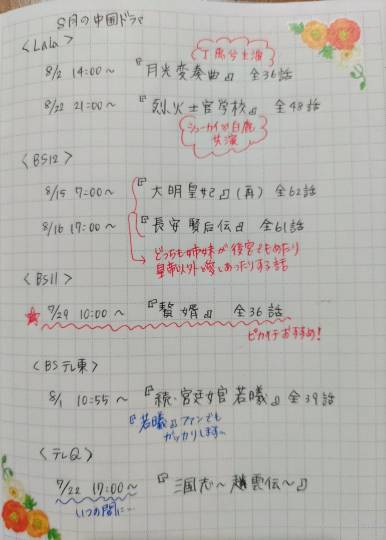 8月の中国ドラマ
<LaLa>
丁禹兮主演
8/2 14:00～ 『月光変奏曲』 全36話
8/22 21:00～ 『烈火士官学校』 全48話
シューカイと白鹿
共演
<BS12>
8/15 7:00～ 『大明皇妃』(再) 全62話
8/16 17:00～ 『長安賢后伝』 全61話
どっちも姉妹が後宮でもめたり
皇帝以外と愛しあったりする話
<BS11>
7/29 10:00～ 『贅婿』 全36話
ピカイチおすすめ!
<BSテレ東>
8/1 10:55～ 『続・宮廷女官 若曦』 全39話
『若曦』ファンでも
ガッカリします〜
<テレQ>
7/22 17:00～ 『三国志～趙雲伝～』
いつの間に…